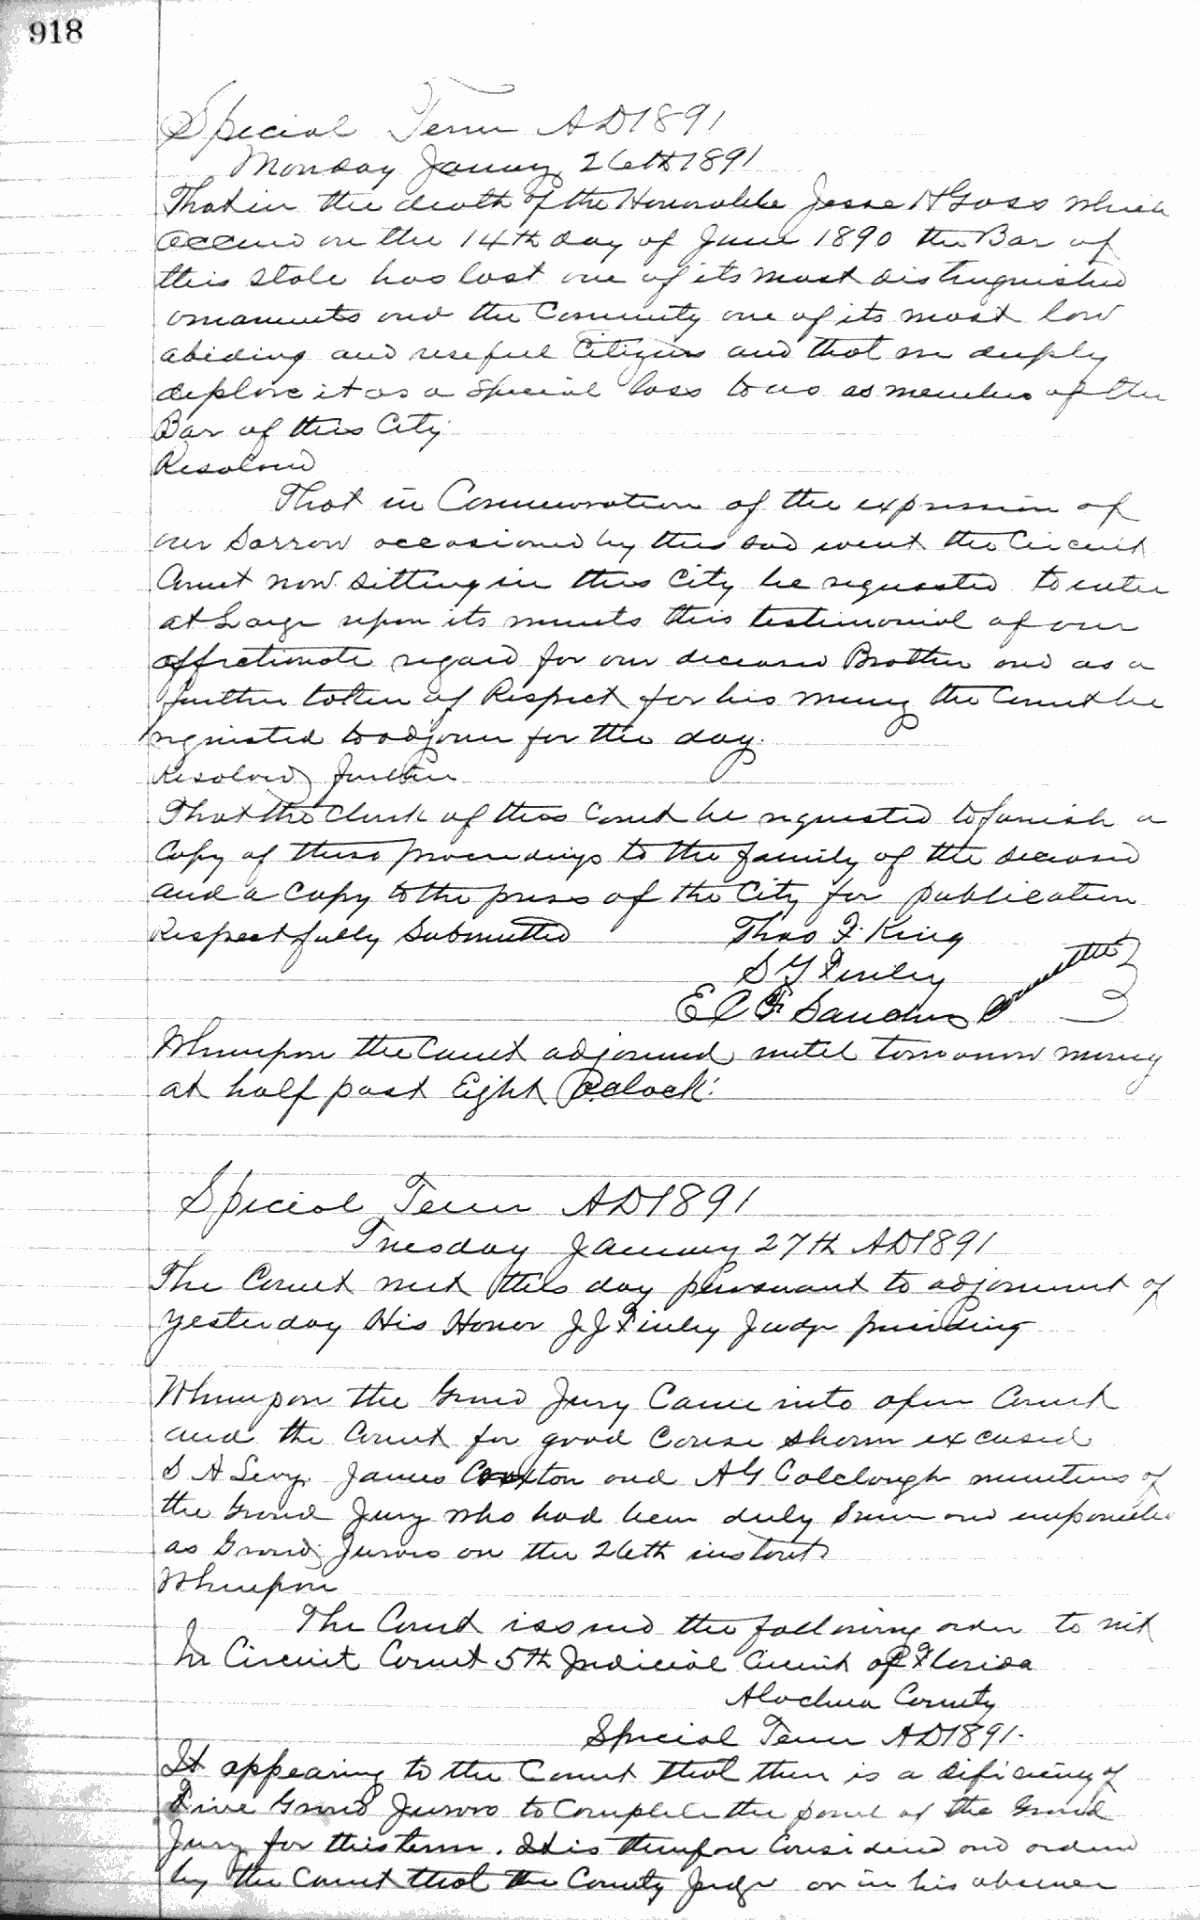 918
Special Term AD1891
Monday January 26th 1891
That in the death of the Honorable Jesse H Goss which
occured on the 14th day of June 1890 the Bar of
this State has lost one of its most distinguished
ornaments and the Community one of its most law
abiding and useful Citizens and that we deeply
deplore it as a Special loss to us as members of the
Bar of this City
Resolved
That in Commemoration of the expression of
our Sorrow occasioned by this sad event the Circuit
Court now sitting in this City be requested to enter
at Large upon its minuts this testimonial of our
affectionate regard for our deceased Brother and as a
further token of Respect for his memory the Court be
requested to adjourn for the day.
Resolved further
That the Clerk of this Court be requested to furnish a
Copy of these proceedings to the family of the deceased
and a Copy to the press of the City for publication
Respectfully Submitted Thos F. King
S Y Finley
E C F Sanchez Committee
Whereupon the Court adjourned until tomorrow morning
at half past Eight Oclock.
Special Term AD1891
Tuesday January 27th AD1891
The Court met this day pursuant to adjournment of
yesterday His Honor J J Finley Judge presiding
Whereupon the Grand Jury Came into open Court
and the Court for good Cause shown excused
S A Levy. James Croxton and A G Colclough members of
the Grand Jury who had been duly Sworn and empaneled
as Grand Jurors on the 26th instant
Whereupon
The Court issued the following order to wit
In Circuit Court 5th Judicial Circuit of Florida
Alachua County
Special Term AD1891.
It appearing to the Court that there is a dificiency of
Five Grand Jurors to Complete the panel of the Grand
Jury for this term. It is therefore Considered and ordered
by the Court that the County Judge or in his absence